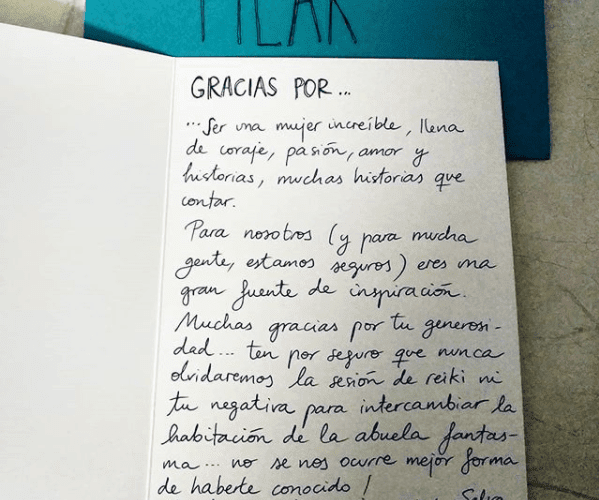 PILAR
GRACIAS POR...
...Ser una mujer increíble, llena
de coraje, pasión, amor y
historias, muchas historias que
contar.
Para nosotros (y para mucha
gente, estamos seguros) eres una
gran fuente de inspiración.
Muchas gracias por tu generosi-
dad... ten por seguro que nunca
olvidaremos la sesión de reiki ni
tu negativa para intercambiar la
habitación de la abuela fantas-
ma... no se nos ocurre mejor forma
de haberte conocido!